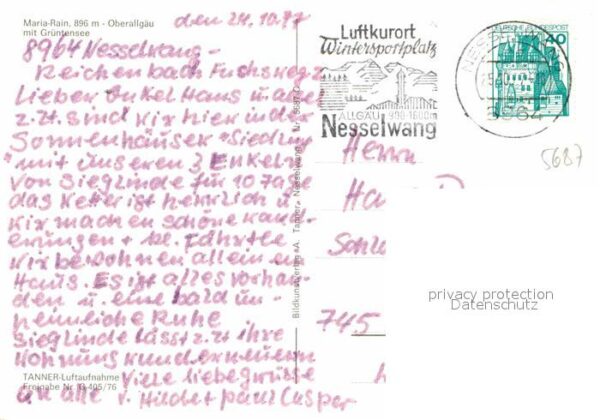 Maria-Rain, 896 m - Oberallgäu
mit Grüntensee
den 24.10.77
8964 Nesselwang -
Reichenbach Fuchsweg 2
Lieber Onkel Hans u.
z.Zt. sind wir hier in der
Sonnenhäuser "Siedlung
mit unseren 3 Enkeln
von Sieglinde für 10 Tage
das Wetter ist herrlich u.
wir machen schöne Wand
erungen + kl. Fährtle
wir bewohnen allein ein
Haus. Es ist alles vorhan-
den u. eine bald un-
heimliche Ruhe
Sieglinde lässt z.Zt ihre
Wohnung rundernewern
Viele liebe Grüsse
an alle v. Hilde + Paul Casper
TANNER-Luftaufnahme
Freigabe Nr. G 405/76
Bildkunstverlag A. Tanner, Nesselwang
Luftkurort
Wintersportplatz
ALLGÄU 900-1600m
Nesselwang
DEUTSCHE BUNDESPOST
40
8964
5687
Herrn
Ha
Schl
745
privacy protection
Datenschutz